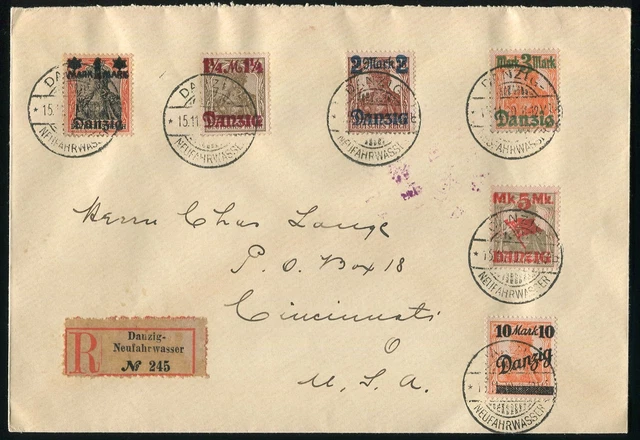 1
MARK MARK
Danzig
1¼ M 1¼
Danzig
2 Mark 2
Danzig
Mark 3 Mark
Danzig
DANZIG
15.11
NEUFAHRWASSER
DANZIG
15.11
NEUFAHRWASSER
DANZIG
NEUFAHRWASSER
DANZIG-
15.
NEUFAHRWASSER
Mk. 5 Mk.
DANZIG
NEUFAHRWASSER
Herrn Chas Lange
P. O. Box 18
Cincinnati
O
U. S. A.
R
Danzig-
Neufahrwasser
№ 245
10 Mark 10
Danzig
NEUFAHRWASSER